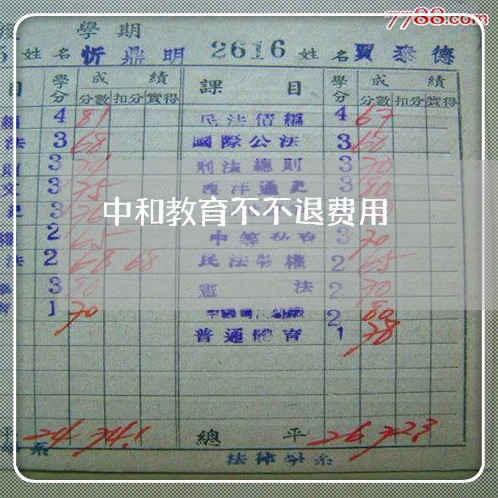 7788.com
學期
姓名 忻鼎明 2616 姓名 賈泰德
目 學分 成績 課目 學分 成績
分數 扣分 實得 分數 扣分 實得
4 81 民法債編 4 67
法 3 68 國際公法 3 60
3 刑法總則 3 70
文 3 75 西洋通史 3 80
中和教育不不退费用
2 3 70
法 2 68 68 民法物權 2 65
3 80 憲法 2 70
1 70 2 80
普通體育 1 78
平 24 74.1 總平 26 72.3
系 法律學系